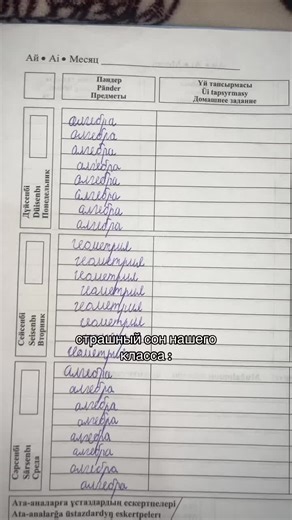 Ай • Ai • Месяц
Пәндер
Pánder
Предметы
Үй тапсырмасы
Úı tapsyrmasy
Домашнее задание
Дүйсенбі
Dúısenbı
Понедельник
алгебра
алгебра
алгебра
алгебра
алгебра
алгебра
алгебра
алгебра
Сейсенбі
Seısenbı
Вторник
геометрия
геометрия
геометрия
геометрия
геометрия
геометрия
страшный сон нашего
класса :
геометрия
Сәрсенбі
Sársenbı
Среда
алгебра
алгебра
алгебра
алгебра
алгебра
алгебра
алгебра
алгебра
Ата-аналарға ұстаздардың ескертпелері
Ata-analarǵa ustazdardyń eskertpelerı